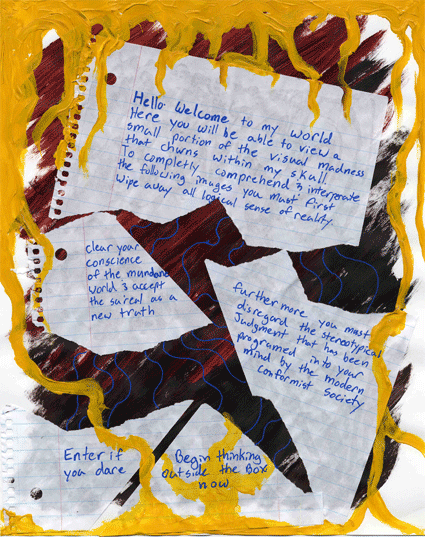 Hello Welcome to my world
Here you will be able to view a
small portion of the visual madness
that churns within my skall
To completly comprehend & interporate
the following images you must first
wipe away all logical sense of reality.
clear your
conscience
of the mundane
world & accept
the saireal as a
new truth
furthermore you must
disregard the stereotypical
Judgment that has been
programed into your
mind by the modern
conformist society
Enter if
you dare
Begin thinking
outside the Box
now